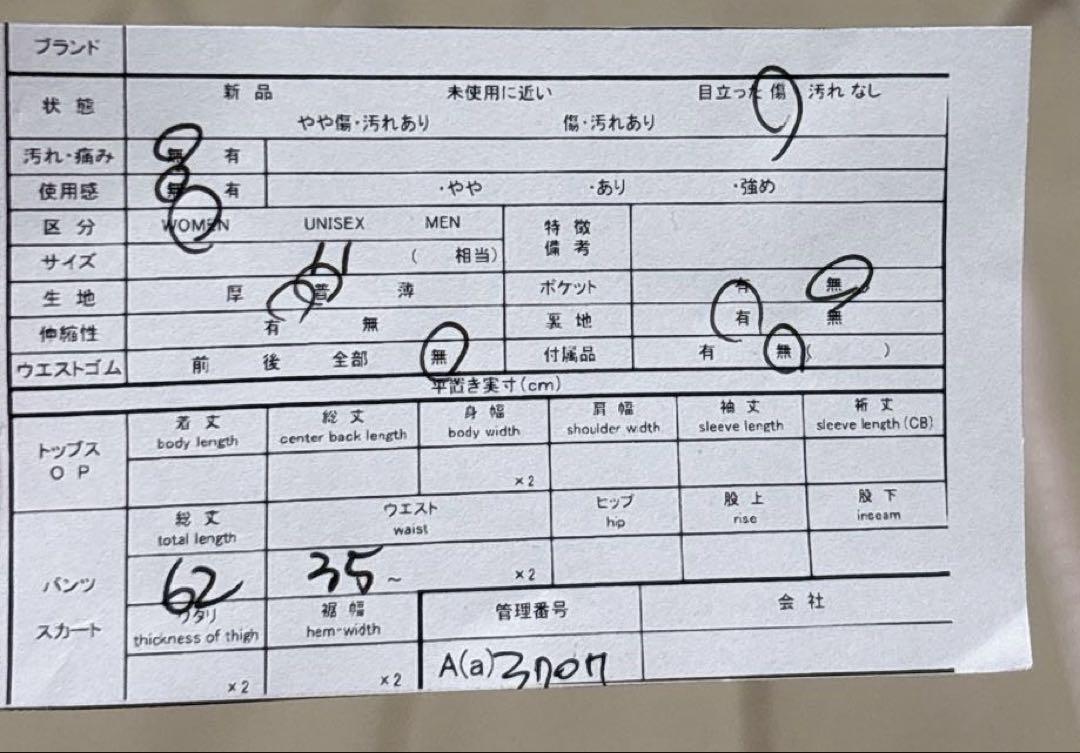 ブランド
状態 新品 未使用に近い 目立った傷 汚れなし
やや傷・汚れあり 傷・汚れあり
汚れ・痛み 無 有
使用感 無 有 ・やや ・あり ・強め
区分 WOMEN UNISEX MEN 特徴
備考
サイズ ( 相当)
生地 厚 普 薄 ポケット 有 無
伸縮性 有 無 裏地 有 無
ウエストゴム 前 後 全部 無 付属品 有 無 ( )
平置き実寸(cm)
トップス
OP
着丈 総丈 身幅 肩幅 袖丈 裄丈
body length center back length body width shoulder width sleeve length sleeve length (CB)
×2
パンツ
スカート
総丈 ウエスト ヒップ 股上 股下
total length waist hip rise inseam
62 35 ~ ×2
ワタリ 裾幅 管理番号 会社
thickness of thigh hem-width
×2 ×2 A(a)